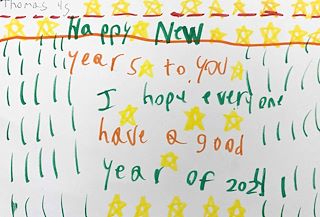 Thomas 4s
Happy New
years to you
I hope everyone
have a good
year of 2021